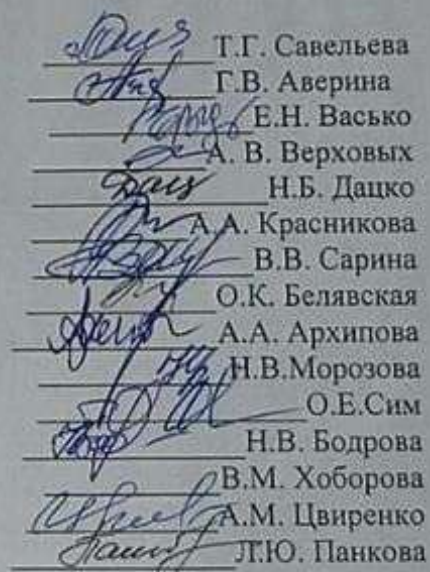 Т.Г. Савельева
Г.В. Аверина
Е.Н. Васько
А. В. Верховых
Н.Б. Дацко
А.А. Красникова
В.В. Сарина
О.К. Белявская
А.А. Архипова
Н.В.Морозова
О.Е.Сим
Н.В. Бодрова
В.М. Хоборова
А.М. Цвиренко
Л.Ю. Панкова